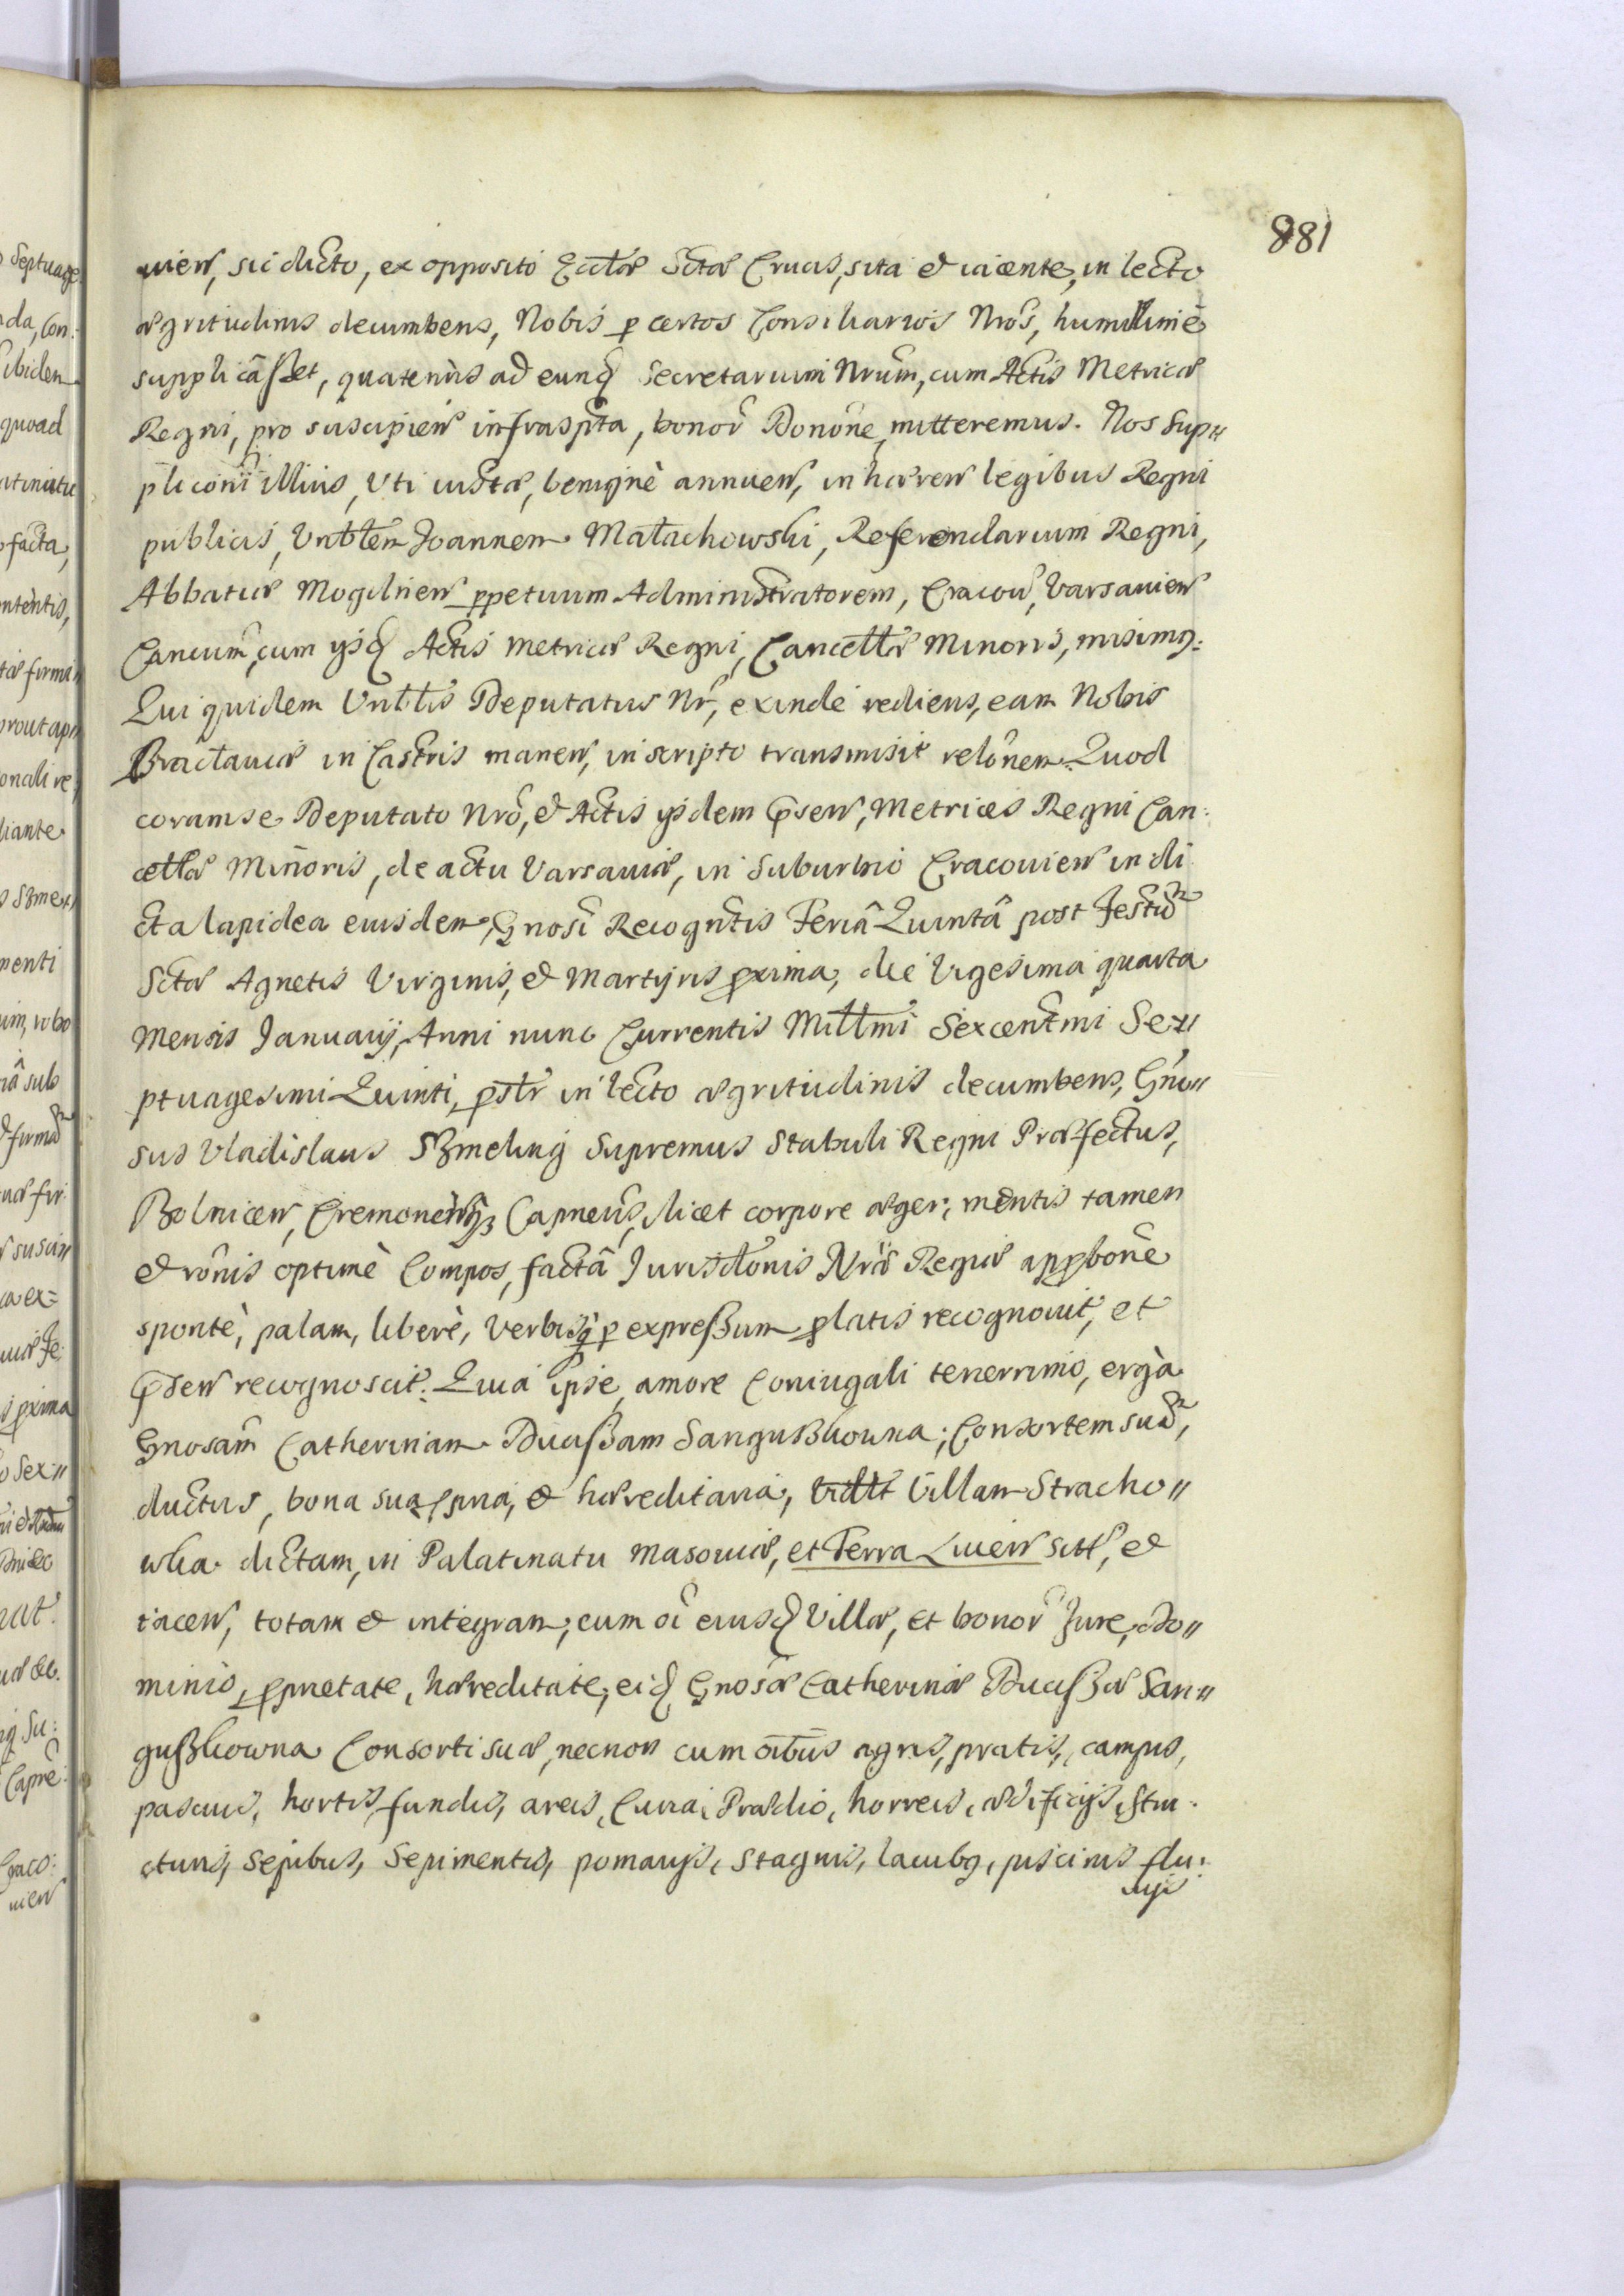 881
uien, sic dicto, ex opposito Eccłæ Sctæ Crucis, sita et iacente, in lecto
ægritudinis decumbens, Nobis p certos Consiliarios Nros, humillimè
supplicâsset, quatenùs ad eunq Secretarium Nrum, cum Actis Metricæ
Regni, pro suscipien infraspta, bonor Donone, mitteremus. Nos Sup〃
pliconi illius, Uti iustæ, benignè annuen, inhæren legibus Regni
publicis, Vnblem Joannem Małachowski, Referendarium Regni,
Abbatiæ Mogilnen ppetuum Administratorem, Cracou, Varsauien
Cancum, cum ijsq Actis Metricæ Regni, Cancellæ Minoris, misimq:
Qui quidem Vnblis Deputatus Nr, exinde rediens, eam Nobis
Bractauiæ in Castris manen, in scripto transmisit relonem. Quod
coram se Deputato Nro, et Actis ijsdem psen, Metrices Regni Can:
cellæ Minoris, de actu Varsauiæ, in Suburbio Cracouien in di
cta lapidea eiusdem, Gnosi Recogntis Feriâ Quintâ post Festũ
Sctæ Agnetis Virginis, et Martyris pxima, die Vigesima quarta
Mensis Januarij, Anni nunc Currentis Millmi Sexcentmi Se〃
ptuagesimi Quinti, psłr in lecto ægritudinis decumbens, Gno〃
sus Vladislaus Szmeling Supremus Stabuli Regni Præfectus,
Bolnicen, Cremonensq Capneus, licet corpore æger, mentis tamen
et ronis optimè Compos, factâ Jurisdtonis Nræ Regiæ appbone
spontè, palam, liberè, Verbisq p expressum platis recognouit, et
psen recognoscit. Quia ipse, amore Coniugali tenerrimo, ergà
Gnosam Catherinam Ducissam Sanguszkowna, Consortem suã,
ductus, bona sua ppria, et hæreditaria, Vidlt Villam Stracho〃
wka dictam, in Palatinatu Masouiæ, et Terra Liuen sitt, et
iacen, totam et integram, cum oi eiusq Villæ, et bonor Jure, do〃
minio, pprietate, hæreditate, eiq Gnosæ Catherinæ Ducissæ San〃
guszkowna Consorti suæ, necnon cum oibus agris, pratis, campis,
pascuis, hortis, fundis, areis, Curia, Prædio, horreis, ædificijs, Stru:
cturis, sepibus, Sepimentis, pomarijs, Stagnis, lacubq, piscinis flu:
uijs